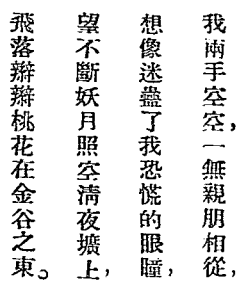 我兩手空空，一無親朋相從，
想像迷蠱了我恐慌的眼瞳，
望不斷妖月照空淸夜壙上，
飛落辮辮桃花在金谷之東。